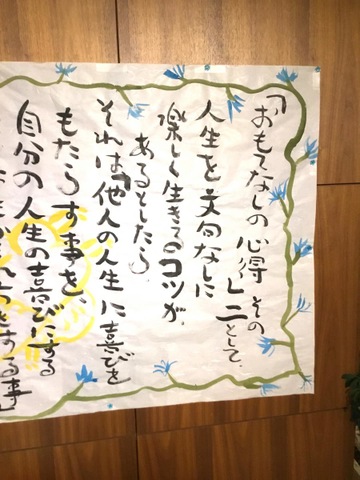 「おもてなしの心得 その
」二として、
人生を文句なしに
楽しく生きてのコツが、
あるとしたら
それは「他人の人生に喜びを
もたらす事を、
自分の人生の喜びにする
をする事」